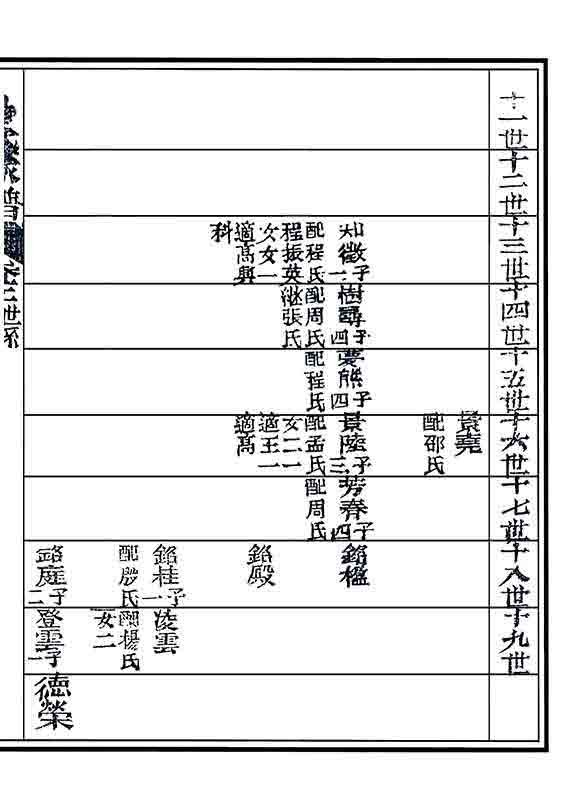 十一世十二世十三世十四世十五世十六世十七世十八世十九世
景堯
配邵氏
知徵子一
配程氏
程振英
女女一
適高興
科
樹尋子四
配周氏
繼張氏
夢熊子四
配程氏
景陸子三
配孟氏
女二一
適王一
適高
芳春子四
配周氏
銘楹
銘殿
銘桂子一
配殷氏
銘庭子二
凌雲
配楊氏
女二
登雲子一
德榮
卷二世系